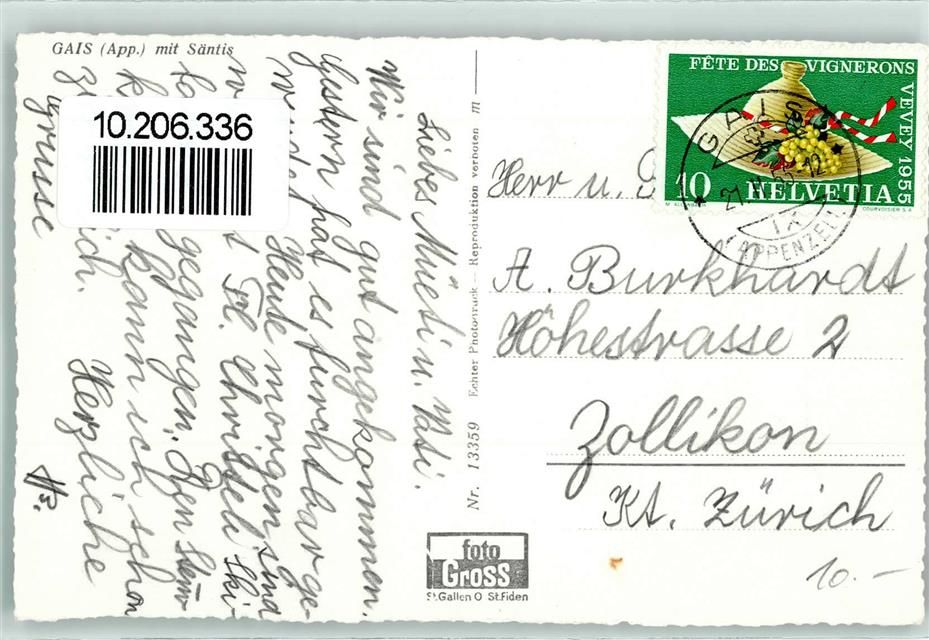 GAIS (App.) mit Säntis
10.206.336
Liebes Müeti u. Vati.
Wir sind gut angekommen.
Gestern hat es furchtbar ge-
Heute morgen sind
Frl. Christeli Ski-
gegangen, den
kann ich schon
ich. Herzliche
Grüsse
Nr. 13359 Echter Photodruck — Reproduktion verboten m
foto
Gross
St.Gallen O St.Fiden
FÊTE DES VIGNERONS
VEVEY 1955
10 HELVETIA
COURVOISIER S.A.
GAIS
(APPENZELL)
Herr u.
A. Burkhardt
Höhestrasse 2
Zollikon
Kt. Zürich
10.-